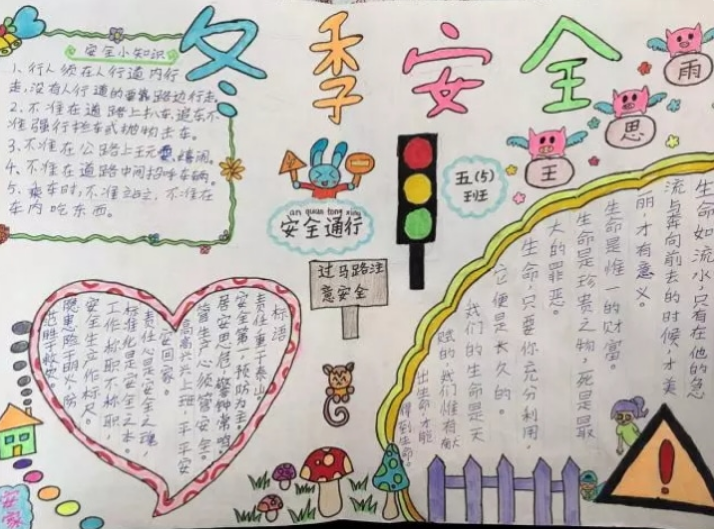 冬季安全
安全小知识
1、行人须在人行道内行
走,没有人行道的靠路边行走。
2、不准在道路上扒车、追车不
准强行拦车或抛物击车。
3、不准在公路上玩耍、嬉闹。
4、不准在道路中间招呼车辆。
5、乘车时,不准站立,不准在
车内吃东西。
an quan tong xing
安全通行
过马路注
意安全
五(5)
班
王
思
雨
生命如流水,只有在他的急
流与奔向前去的时候,才美
丽,才有意义。
生命是惟一的财富。
生命是珍贵之物,死是最
大的罪恶。
生命,只要你充分利用,
它便是长久的。
我们的生命是天
赋的,我们惟有献
出生命,才能
得到生命。
标语
责任重于泰山。
安全第一预防为主。
居安思危,警钟常鸣。
管生产必须管安全。
高高兴兴上班,平平安
安回家。
责任心是安全之魂,
标准化是安全之本。
工作称职不称职,
安全生产作标尺。
隐患险于明火,防
范胜于救灾